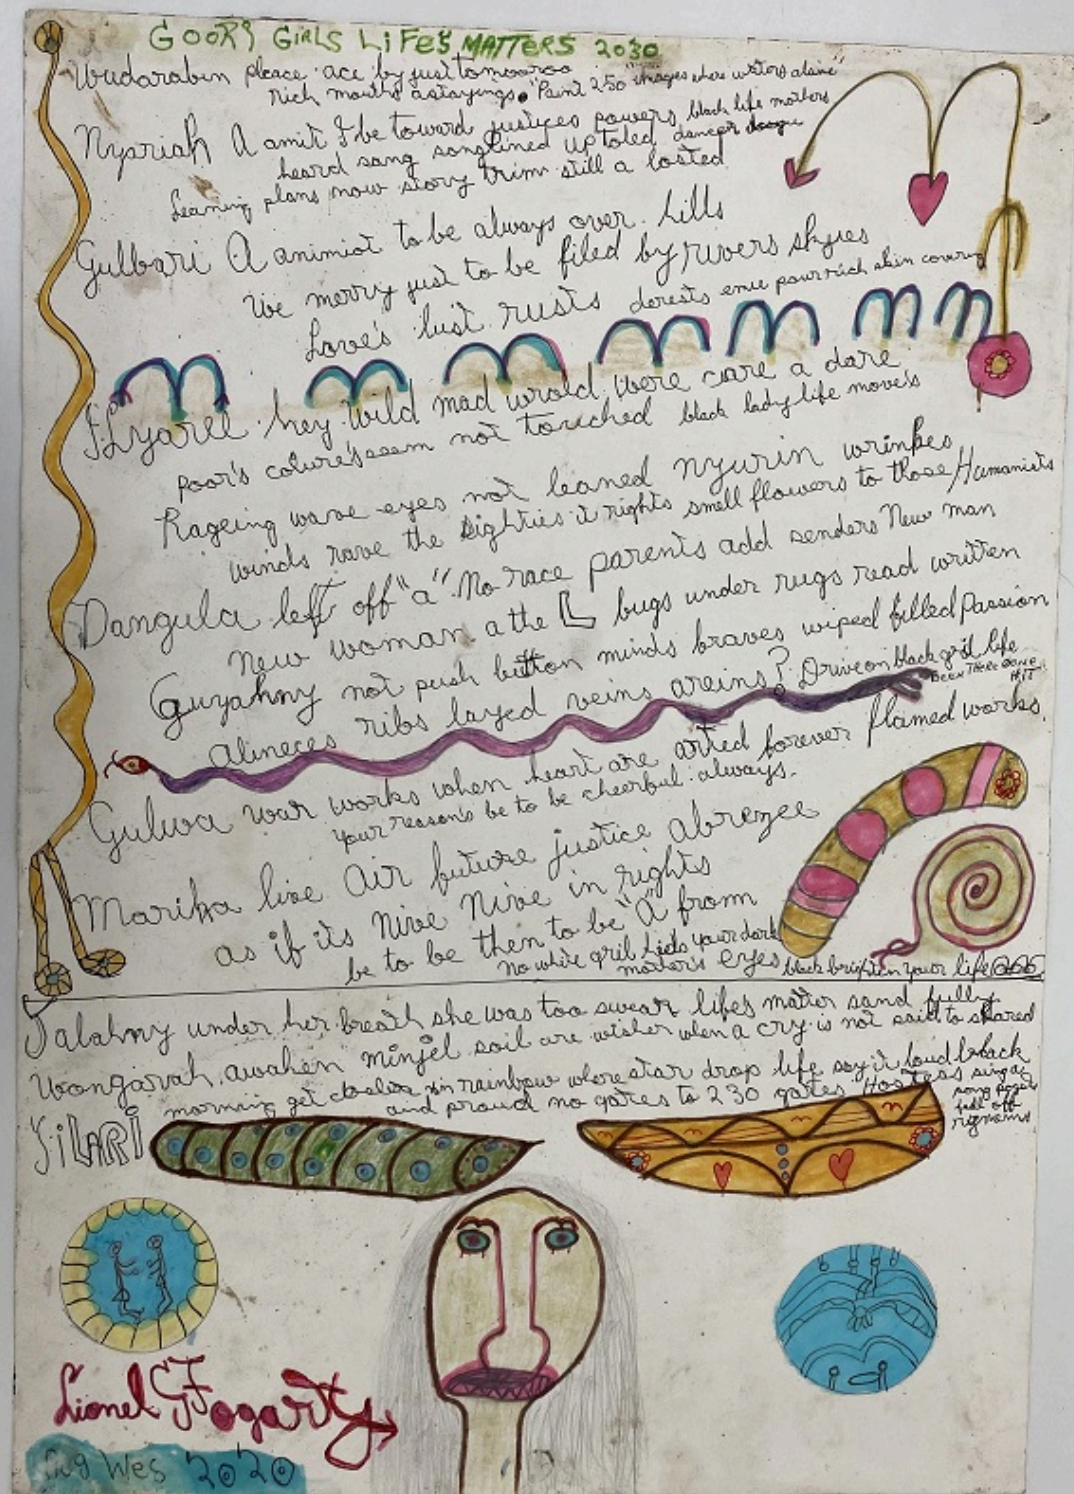 GOORI GIRLS LIFE'S MATTERS 2030
Wudarabin pleace ace by just tomooroo
rich mouths astayings. Paint 250 "images where waters alaine"
Nyariah A amit I be toward justices powers black life mothers
heard sang songlined up toled dancer
Learning plans now story trim still a losted
Gulbari A animiot to be always over hills
We merry just to be filed by rivers skyies
Love's lust rusts derests emu pour rich skin covering
hey wild mad wrold were care a dare
Poor's colure's seem not touched black lady life move's
Rageing wave eyes not leaned nyurin wrinkes
winds rave the eighties it rights smell flowers to those Humanists
Dangula left off "a" No race parents add senders New man
New woman a the L bugs under rugs read written
Guyahny not push button minds braves wiped filled Passion
alineces ribs layed veins areins? Drive on black gril life
BEEN THERE DONE
Gulwa war works when heart are arted forever flamed works.
Your reason's be to be cheerful always.
Marika live Air future justice abrezee
as if its Nive Nive in rights
be to be then to be "a" from
No white gril lids your dark
matter's eyes black brighten your life
Jalahny under her breath she was too swear life's matter sand fully
Wongarah awaken minjel soil are wisher when a cry is not said to shared
morning get in rainbow where star drop life say it loud black
and proud no gates to 230 gates. Hostess sing a
song
fall off
JILARI
Lionel G Fogarty
Wes 2020